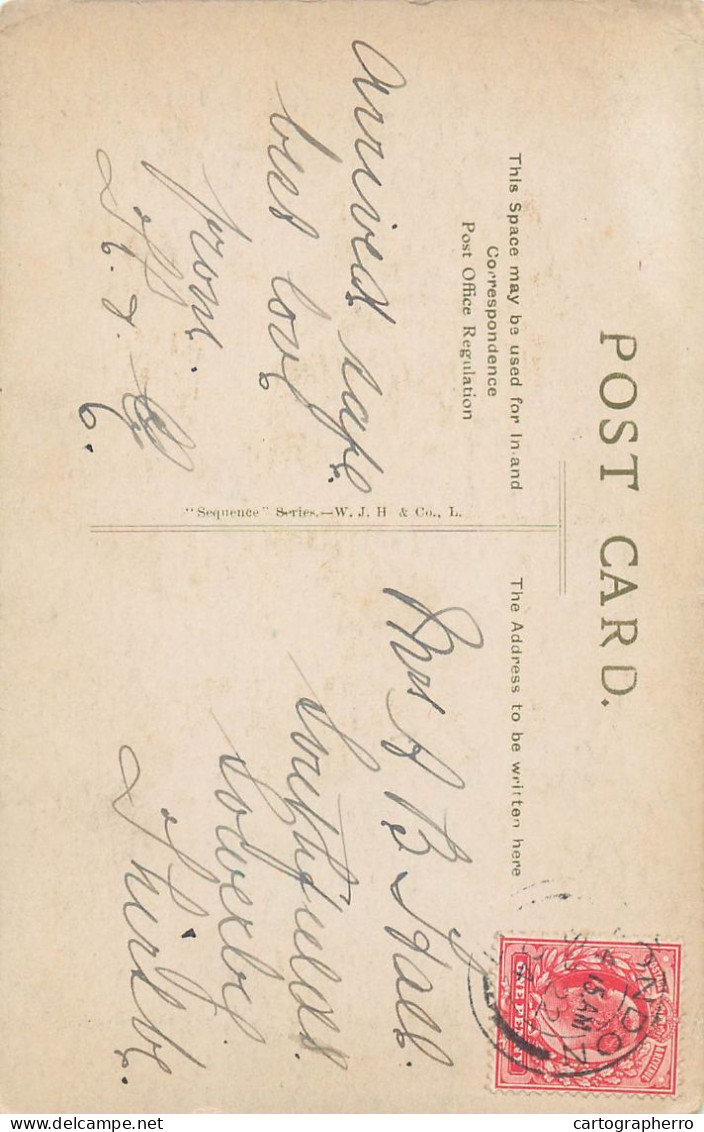 POST CARD.
This Space may be used for Inland
Correspondence
Post Office Regulation
The Address to be written here
arrived safe.
best love
from.
"Sequence" Series.—W. J. H & Co., L.
Mrs J B Hall.
Southfields.
Sowerby.
Thirsk.
LONDON
15 AM
ONE PENNY
delcampe.net
cartographerro